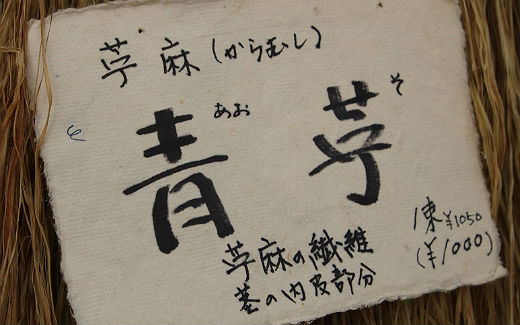 苧麻(からむし)
あお そ
青苧
苧麻の繊維
茎の内皮部分
1束 ¥1050
(¥1000)